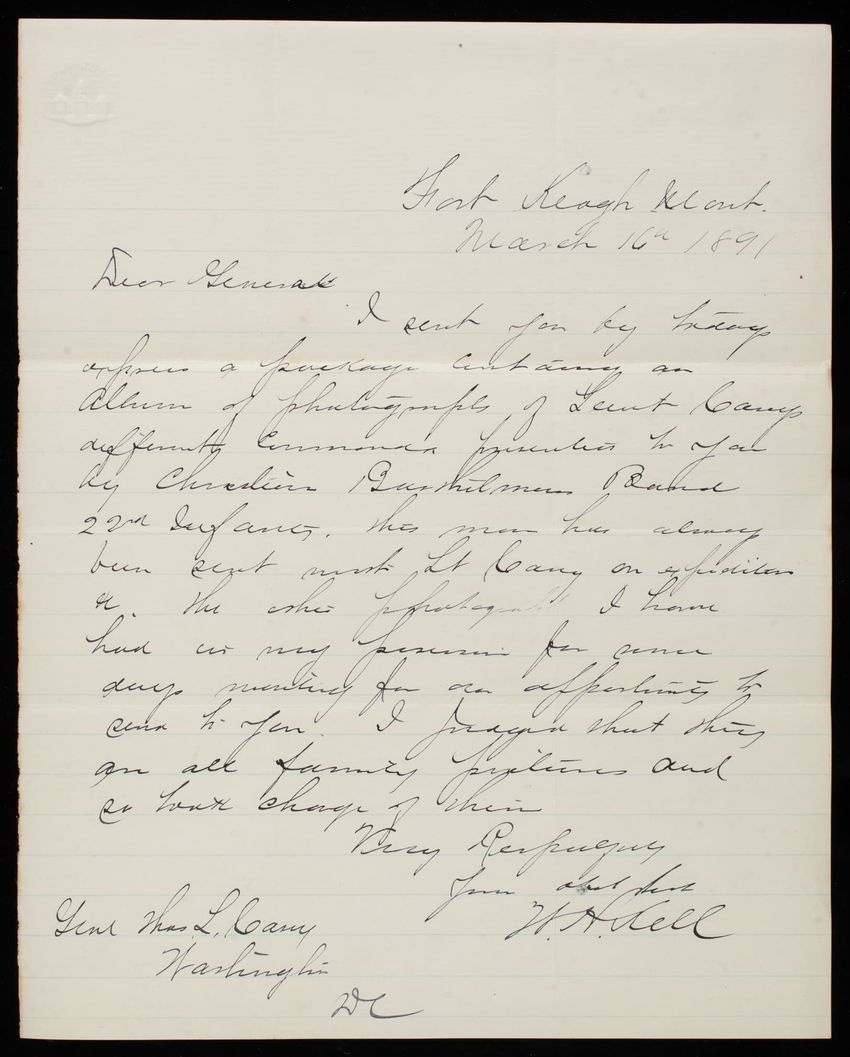 Fort Keogh Mont.
March 16th 1891
Dear General
I sent you by todays
express a package containing an
Album of photographs of Lieut Caseys
different commands presented to you
by Christian Barthelmess Band
22nd Infantry. This man has always
been sent with Lt Casey on expeditions
&c. The other photographs I have
had in my possession for some
days waiting for an opportunity to
send to you. I judged that they
are all family pictures and
so took charge of them
Very Respectfully
Your obdt Servt
W. H. Kell
Genl Thos. L. Casey
Washington
DC